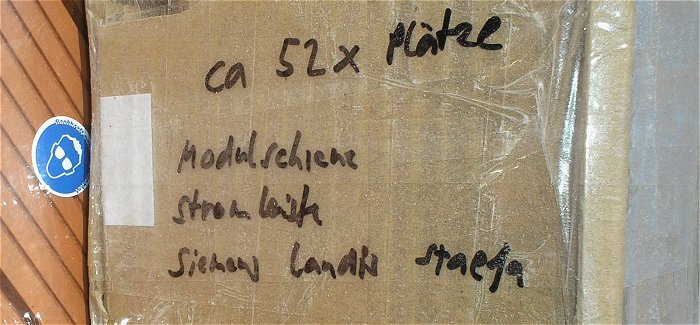 ca 52x Plätze
Modulschiene
Stromleiste
Siemens Landis Staefa